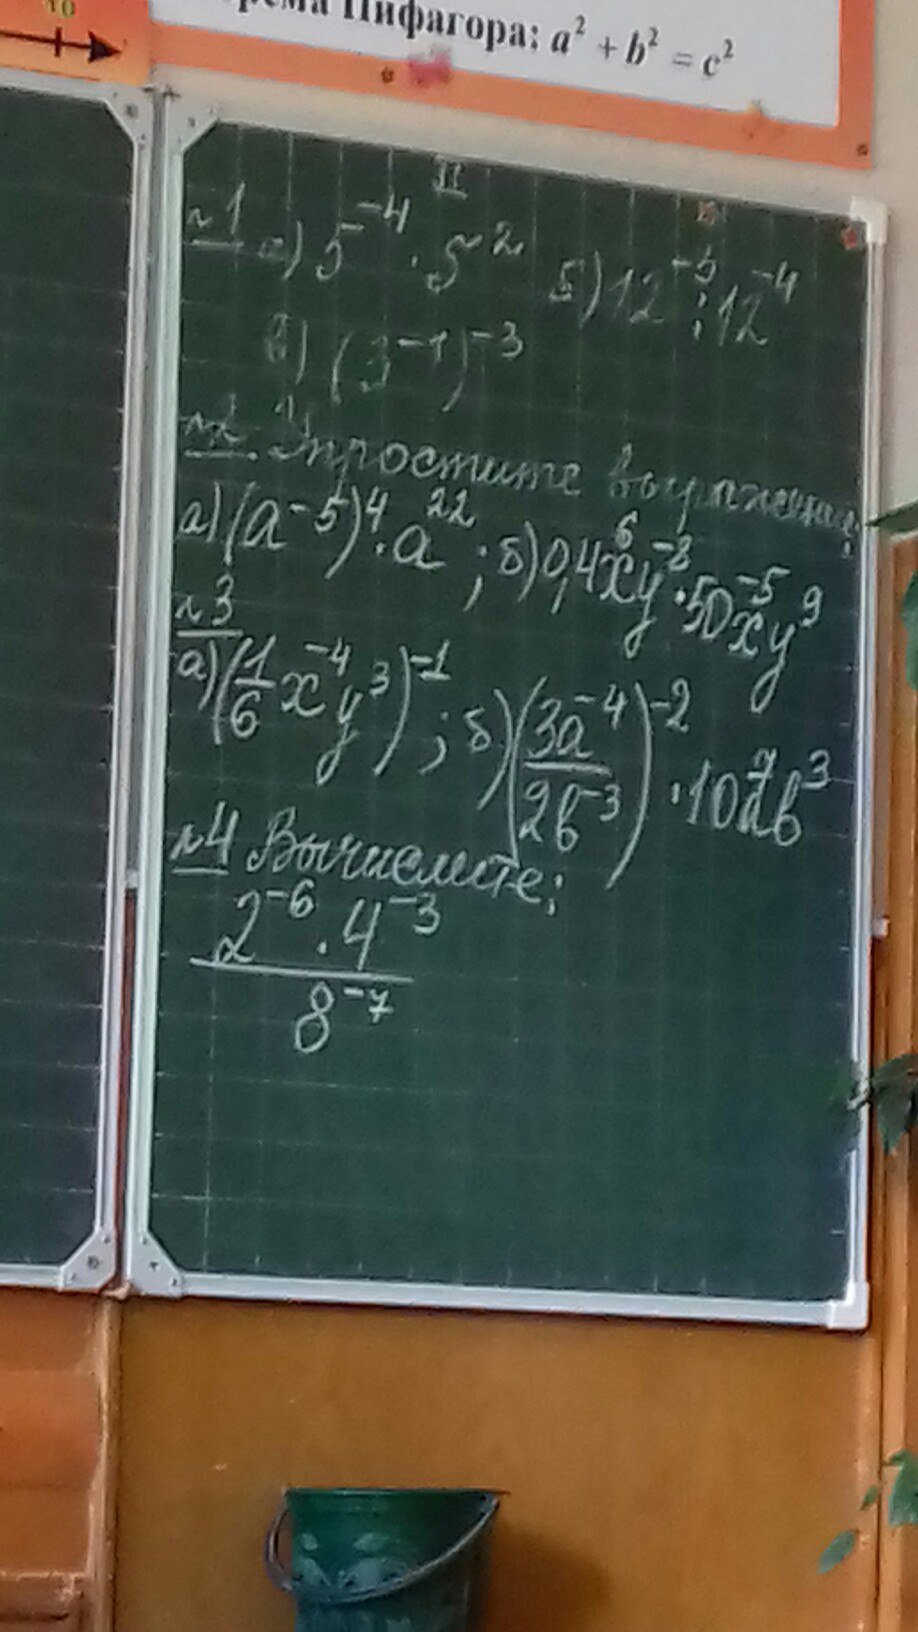 10
Пифагора: a² + b² = c²
II
№1 а) 5⁻⁴ · 5² б) 12⁻³ : 12⁻⁴
в) (3⁻¹)⁻³
№2. Упростите выражение:
а) (a⁻⁵)⁴ · a²²; б) 0,4x⁶y⁻⁸ · 50x⁻⁵y⁹
№3
а) (1/6 x⁻⁴y³)⁻¹; б) (3a⁻⁴/2b⁻³)⁻² · 10a⁷b³
№4 Вычислите:
2⁻⁶ · 4⁻³
8⁻⁷